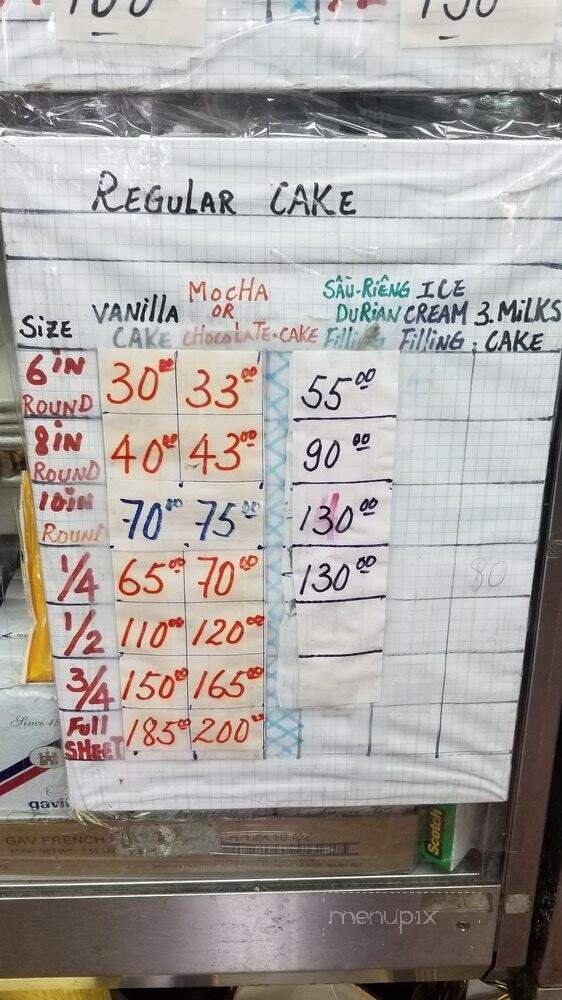 REGULAR CAKE
SiZE VANillA CAKE MOCHA OR CHOCOLATE.CAKE SẦU-RIÊNG DURIAN Filling ICE CREAM Filling 3.MiLKS CAKE
6 iN ROUND 30.00 33.00 55.00
8 iN ROUND 40.00 43.00 90.00
10 iN ROUND 70.00 75.00 130.00
1/4 65.00 70.00 130.00 80
1/2 110.00 120.00
3/4 150.00 165.00
Full SHEET 185.00 200.00
Since 18
gavi
GAV FRENCH
Scotch
menupix